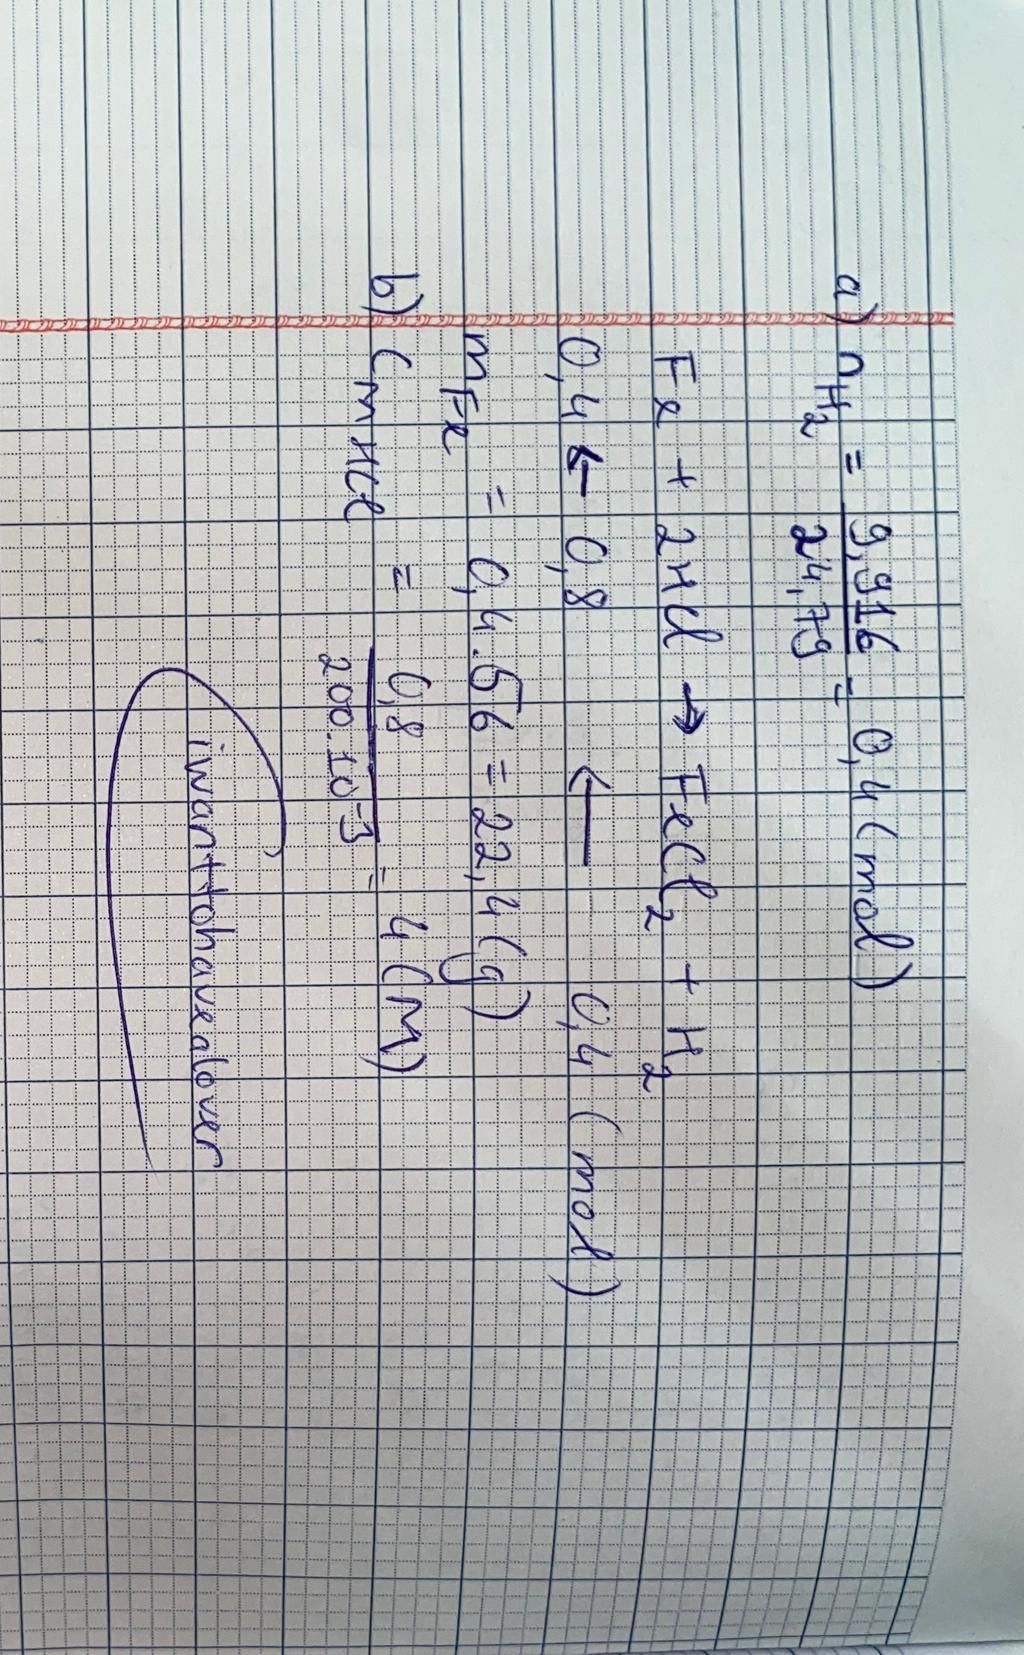 a) nH₂ = 9,916 / 24,79 = 0,4 (mol)
Fe + 2HCl → FeCl₂ + H₂
0,4 ← 0,8 ← 0,4 (mol)
mFe = 0,4 . 56 = 22,4 (g)
b) CM HCl = 0,8 / 200.10⁻³ = 4 (M)
iwanttohavealover